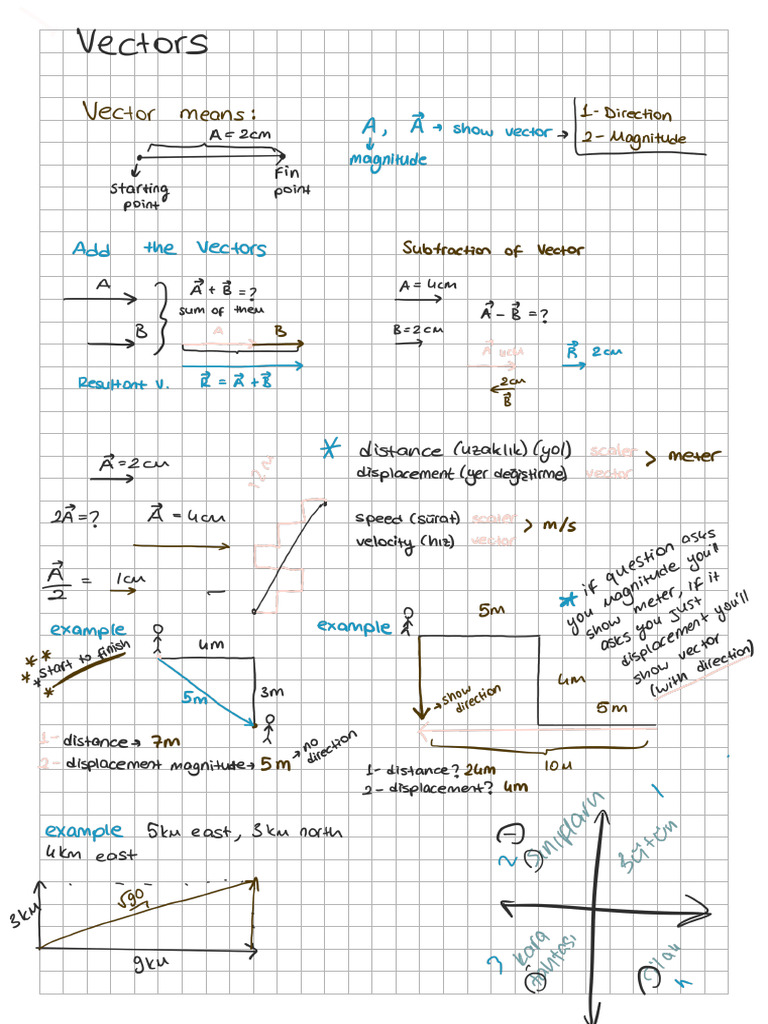 Vectors
Vector means:
A = 2cm
Starting point
Fin point
A, A⃗ → show vector →
magnitude
1- Direction
2- Magnitude
Add the Vectors
A
B
A⃗ + B⃗ = ?
sum of them
A
B
Resultant v. R⃗ = A⃗ + B⃗
Subtraction of Vector
A = 4cm
B = 2cm
A⃗ - B⃗ = ?
A⃗ 4cm
R⃗ 2cm
2cm
B⃗
A⃗ = 2cm
2A⃗ = ? A⃗ = 4cm
A⃗/2 = 1cm
* distance (uzaklık) (yol) scaler
displacement (yer değiştirme) vector
> meter
speed (sürat) scaler
velocity (hız) vector
> m/s
* if question asks
you magnitude you'll
show meter, if it
asks you just
displacement you'll
show vector
(with direction)
example
* * * * start to finish
4m
3m
5m
1- distance → 7m
2- displacement magnitude → 5m → no direction
example
5m
4m
5m
→ show direction
10m
1- distance? 24m
2- displacement? 4m
example 5km east, 3km north
4km east
3km
√90
9km
1
2
sınıfların
bütün
3
kara
tahtası